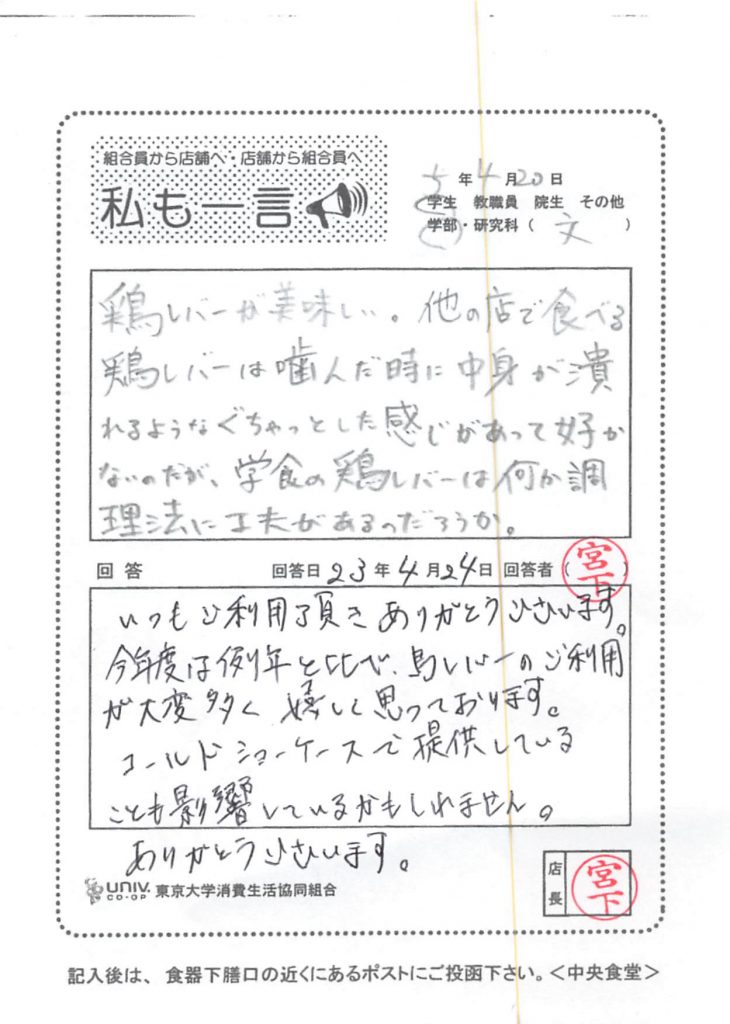 組合員から店舗へ・店舗から組合員へ
私も一言
年4月20日
学生 教職員 院生 その他
学部・研究科（ 文 ）
鶏レバーが美味しい。他の店で食べる
鶏レバーは噛んだ時に中身が潰
れるようなぐちゃっとした感じがあって好か
ないのだが、学食の鶏レバーは何か調
理法に工夫があるのだろうか。
回答 回答日23年4月24日 回答者（宮下）
いつもご利用頂きありがとうございます。
今年度は例年と比べ、鳥レバーのご利用
が大変多く嬉しく思っております。
コールドショーケースで提供している
ことも影響しているかもしれません。
ありがとうございます。
UNIV. CO-OP 東京大学消費生活協同組合
店長 宮下
記入後は、食器下膳口の近くにあるポストにご投函下さい。＜中央食堂＞